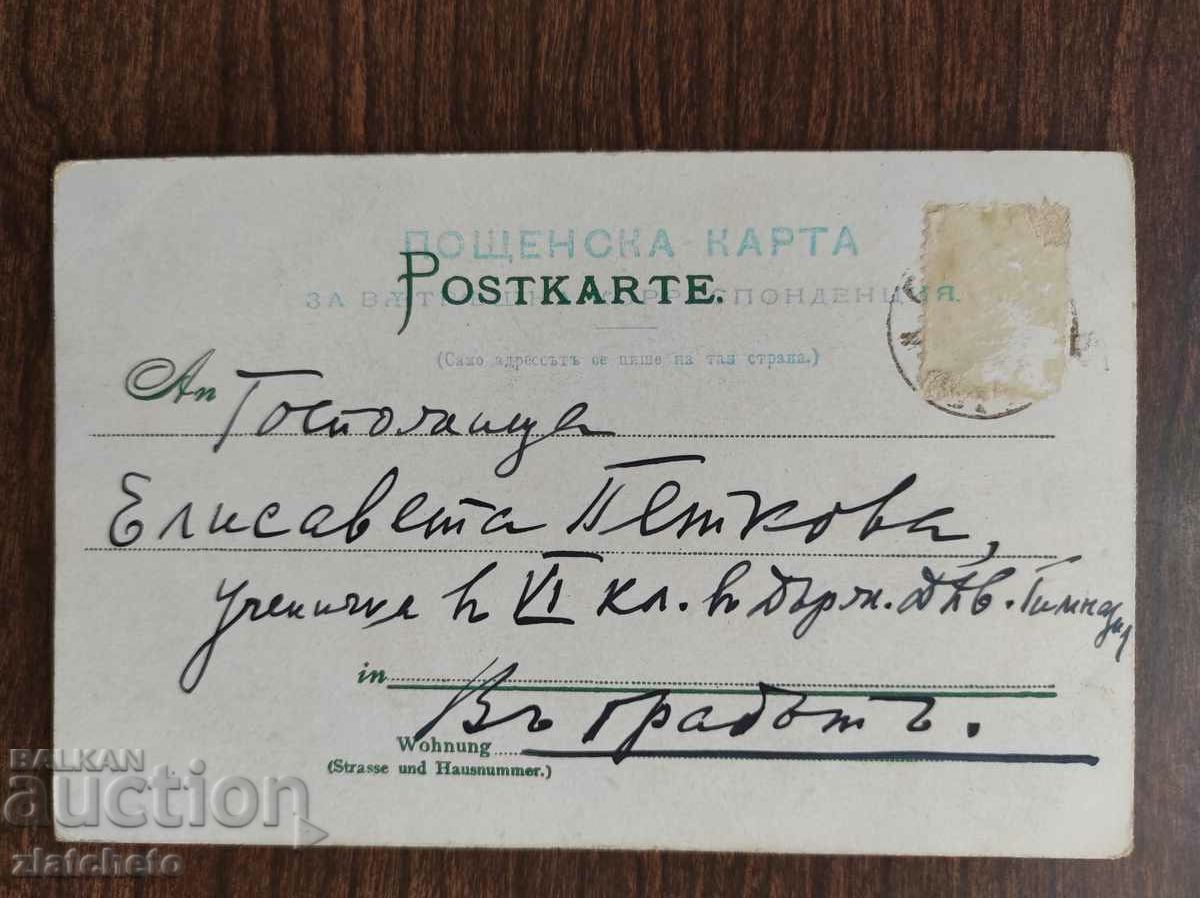 ПОЩЕНСКА КАРТА
POSTKARTE.
ЗА ВѪТРѢШНА КОРРЕСПОНДЕНЦИЯ.
(Само адрессътъ се пише на тая страна.)
An Госпожица
Елисавета Петкова,
ученичка въ VI кл. въ Държ. Дѣв. Гимназия
in
Въ градътъ.
Wohnung
(Strasse und Hausnummer.)
BALKAN
auction
zlatcheto